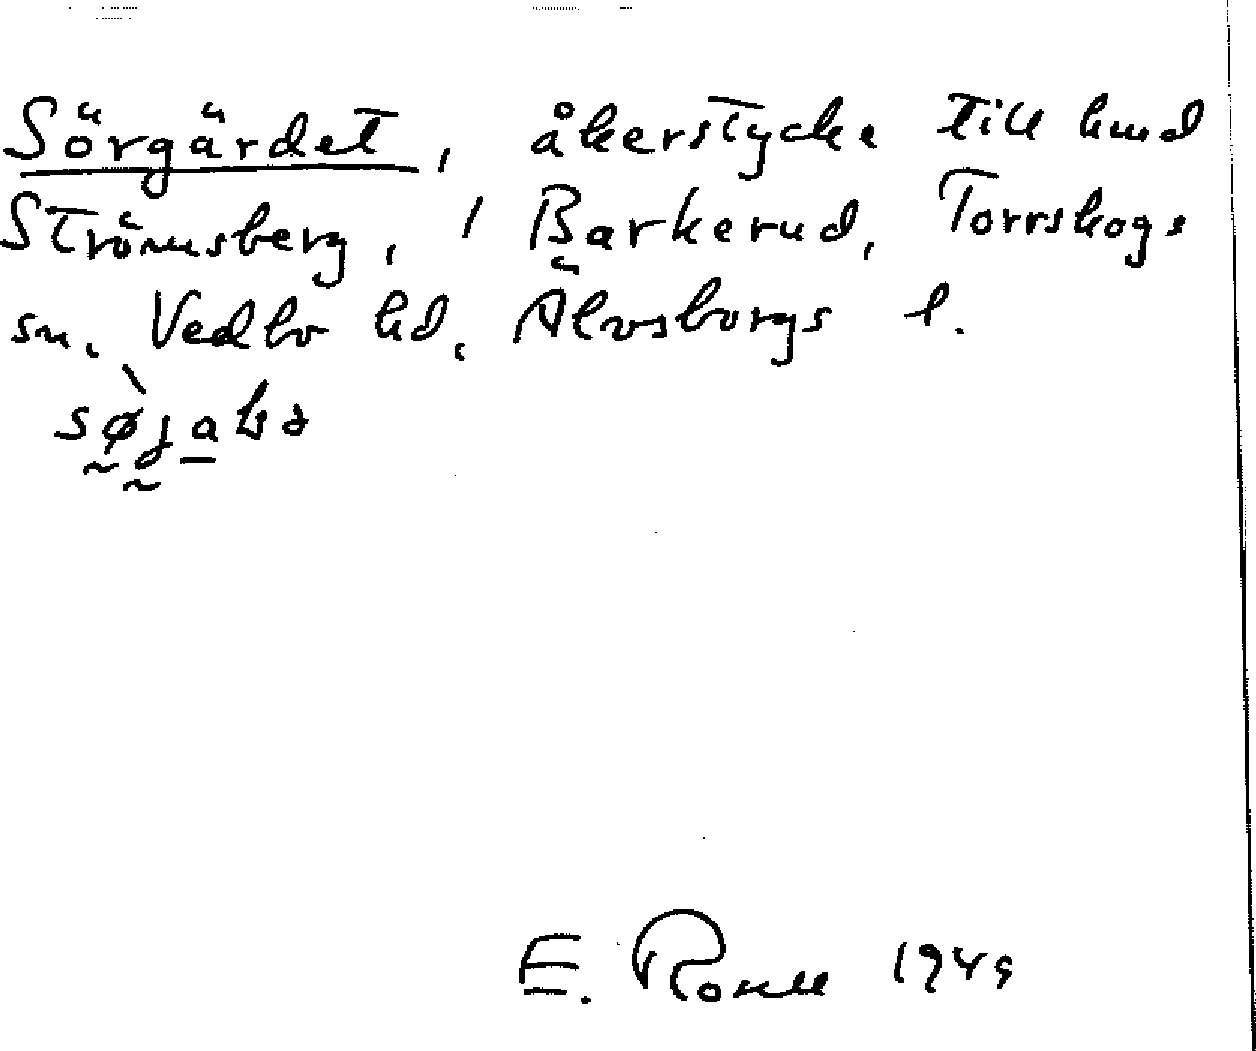 Sörgärdet, åkerstycke till hmd
Strömsberg, 1 Barkerud, Torrskogs
sn. Vedbo hd. Älvsborgs l.
E. 1949